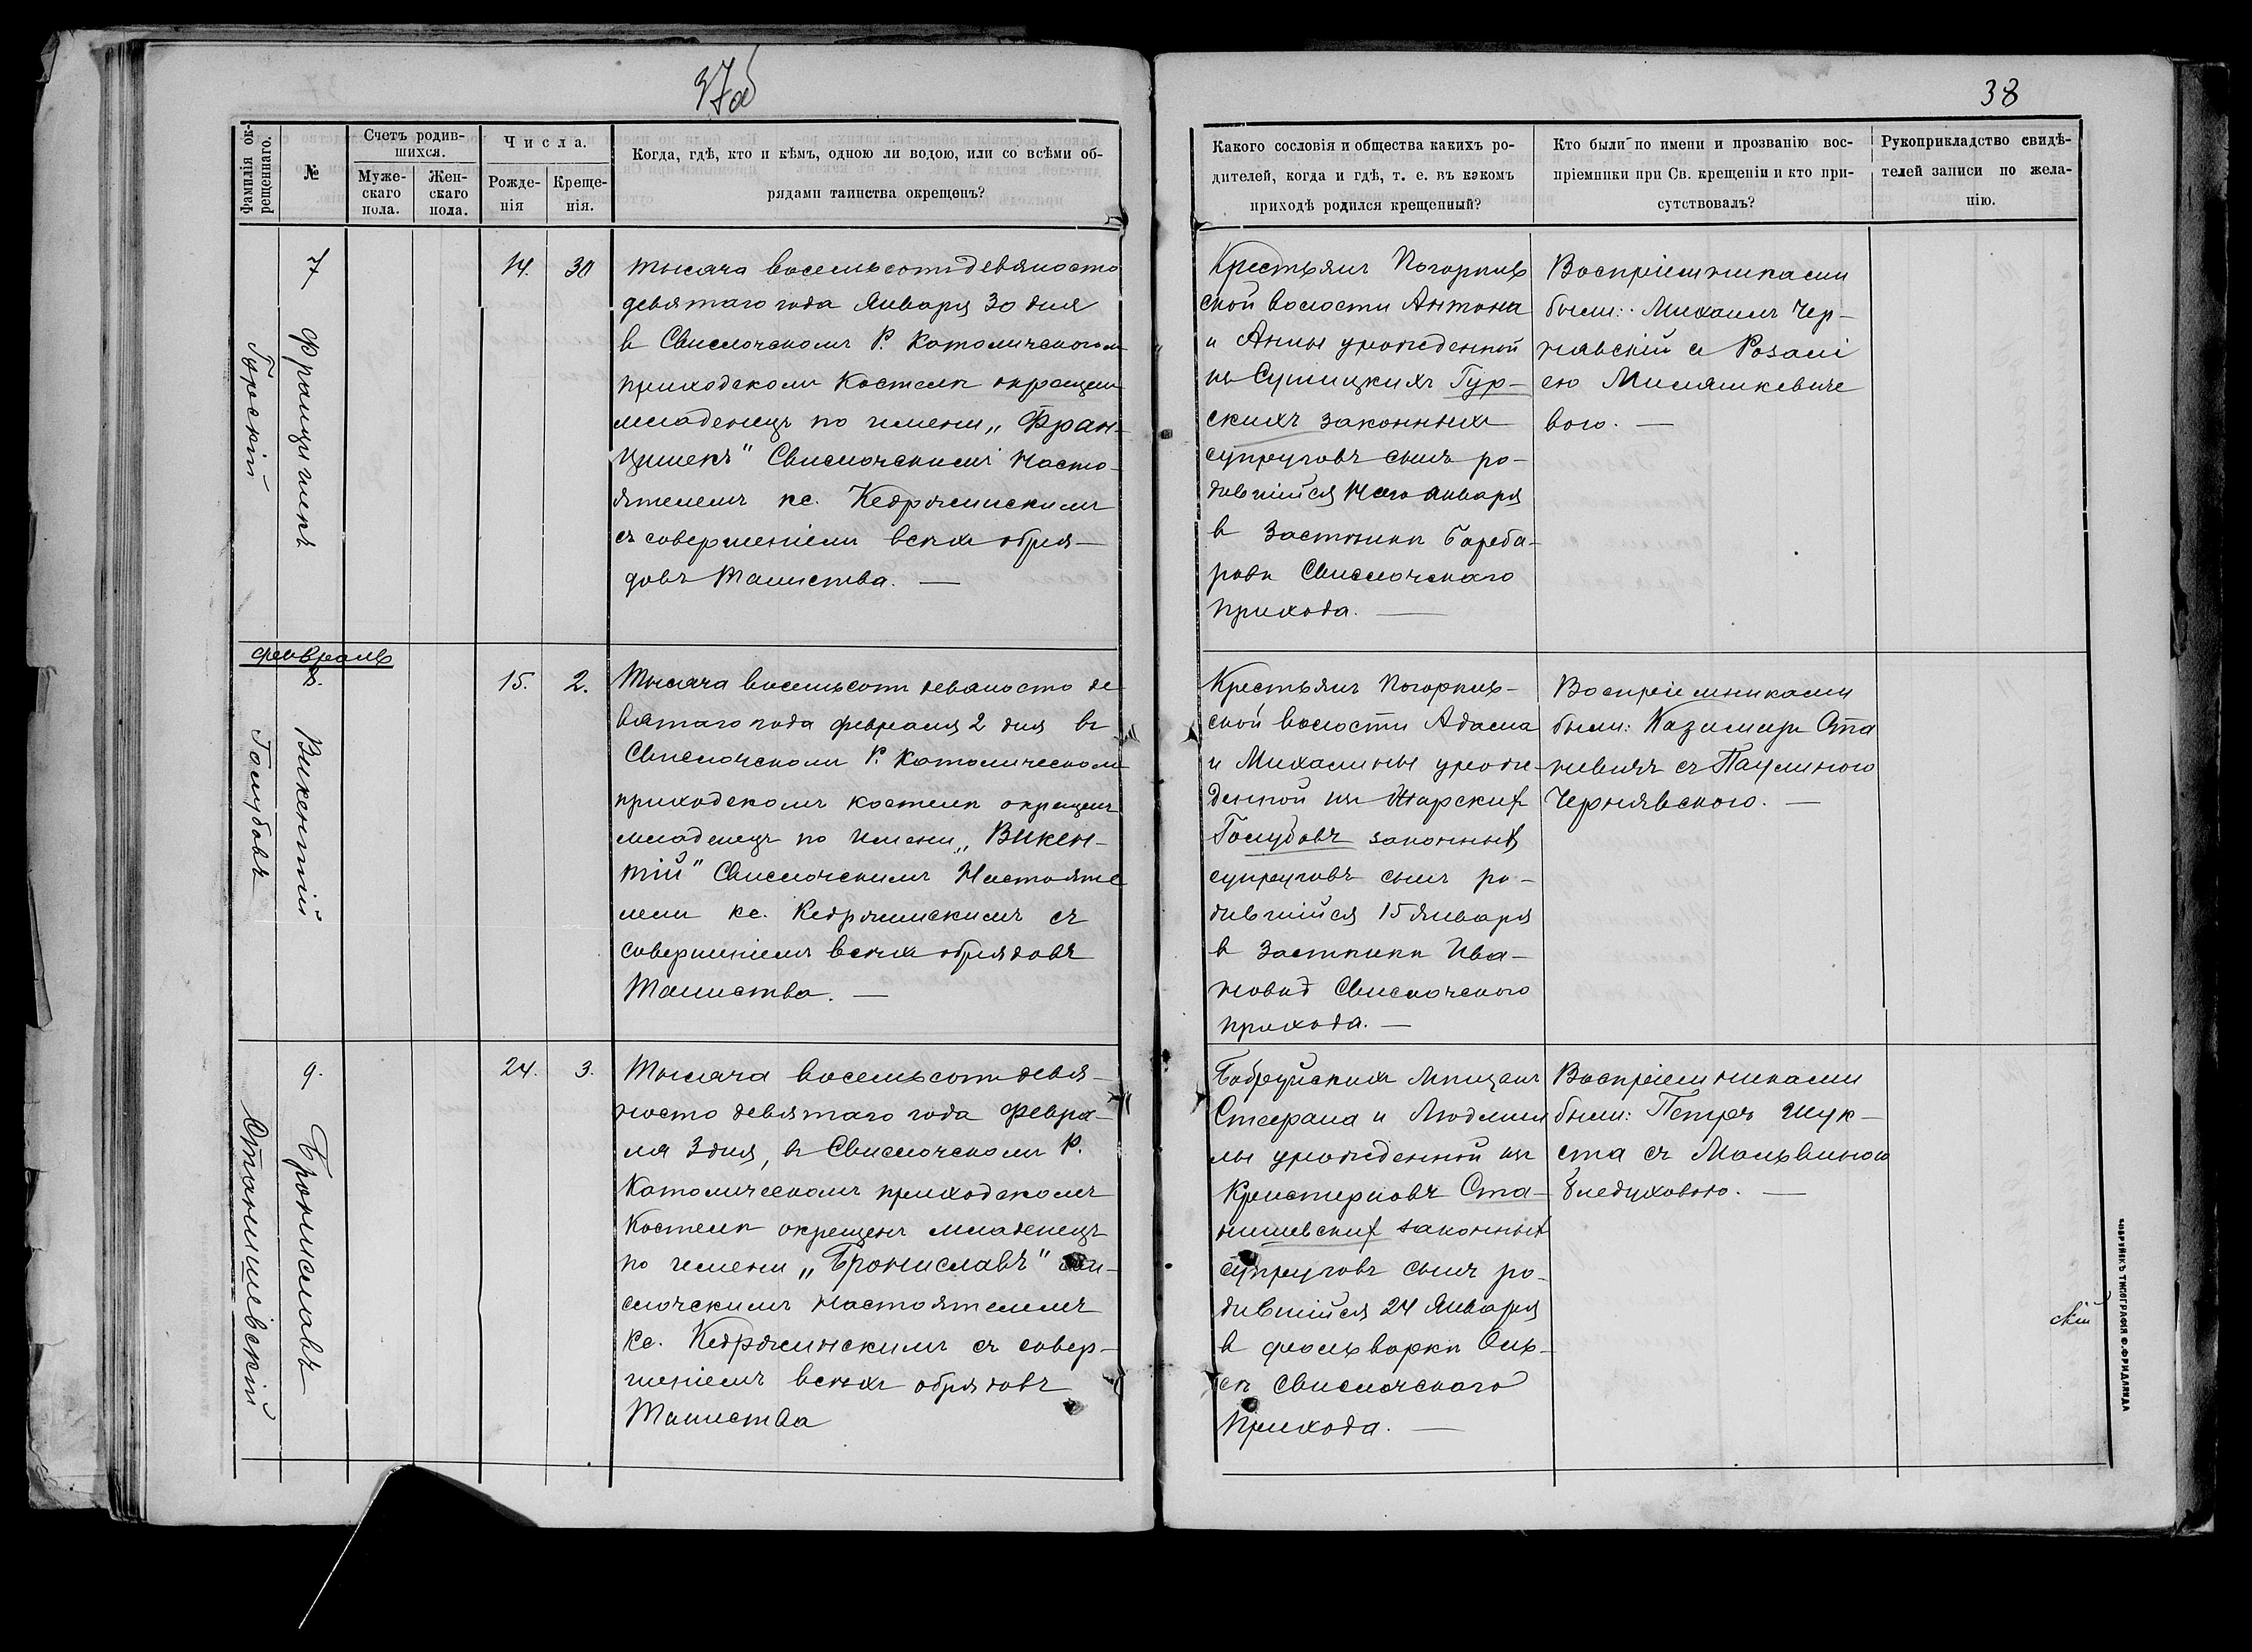 37об
38
Фамилія ок-
рещеннаго.
№
Счетъ родив-
шихся.
Муже-
скаго
пола.
Жен-
скаго
пола.
Числа.
Рожде-
нія
Креще-
нія.
Когда, гдѣ, кто и кѣмъ, одною ли водою, или со всѣми об-
рядами таинства окрещенъ?
Какого сословія и общества какихъ ро-
дителей, когда и гдѣ, т. е. въ какомъ
приходѣ родился крещенный?
Кто были по имени и прозванію вос-
пріемники при Св. крещеніи и кто при-
сутствовалъ?
Рукоприкладство свидѣ-
телей записи по жела-
нію.
7
Францишекъ
Гурскій
14. 30
тысяча восемьсотъ девяносто
девятаго года Января 30 дня
въ Свислочскомъ Р. Католическомъ
приходскомъ Костелѣ окрещенъ
младенецъ по имени „Фран-
цишекъ" Свислочскимъ Насто-
ятелемъ кс.
съ совершеніемъ всѣхъ обря-
довъ Таинства. —
Крестьянъ Погорѣль-
ской волости Антона
и Анны урожденной
изъ Сушицкихъ Гур-
скихъ законныхъ
супруговъ сынъ ро-
дившійся 14 сего января
въ Застѣнкѣ
Свислочскаго
прихода. —
Воспріемниками
были: Михаилъ Чер-
нявскій съ Розалі
ею
вою. —
Февраль
8.
Викентій
Голубовъ
15. 2.
Тысяча восемьсотъ девяносто де
вятаго года февраля 2 дня въ
Свислочскомъ Р. Католическомъ
приходскомъ костелѣ окрещенъ
младенецъ по имени „Викен-
тій" Свислочскимъ Настояте
лемъ кс. съ
совершеніемъ всѣхъ обрядовъ
Таинства. —
Крестьянъ Погорѣль-
ской волости Адама
и Михалины урож-
денной изъ Жарскихъ
Голубовъ законныхъ
супруговъ сынъ ро-
дившійся 15 января
въ Застѣнкѣ Ива-
Свислочскаго
прихода. —
Воспріемниками
были: Казимиръ Ста
съ Паулиною
Чернявскою. —
9.
Брониславъ
Станишевскій
24. 3.
Тысяча восемьсотъ девя-
носто девятаго года Февра-
ля 3 дня, въ Свислочскомъ Р.
Католическомъ приходскомъ
Костелѣ окрещенъ младенецъ
по имени „Брониславъ" Сви-
слочскимъ Настоятелемъ
кс. съ совер-
шеніемъ всѣхъ обрядовъ
Таинства
Бобруйскихъ мѣщанъ
Стефана и Людми
лы урожденной изъ
Ста-
нишевскихъ законныхъ
супруговъ сынъ ро-
дившійся 24 Января
въ фольваркѣ Оль-
сѣ Свислочскаго
Прихода. —
Воспріемниками
были: Петръ Шук-
ста съ Мальвиною
скій
БОБРУЙСКЪ ТИПОГРАФІЯ Ф. ФРИДЛЯНДА